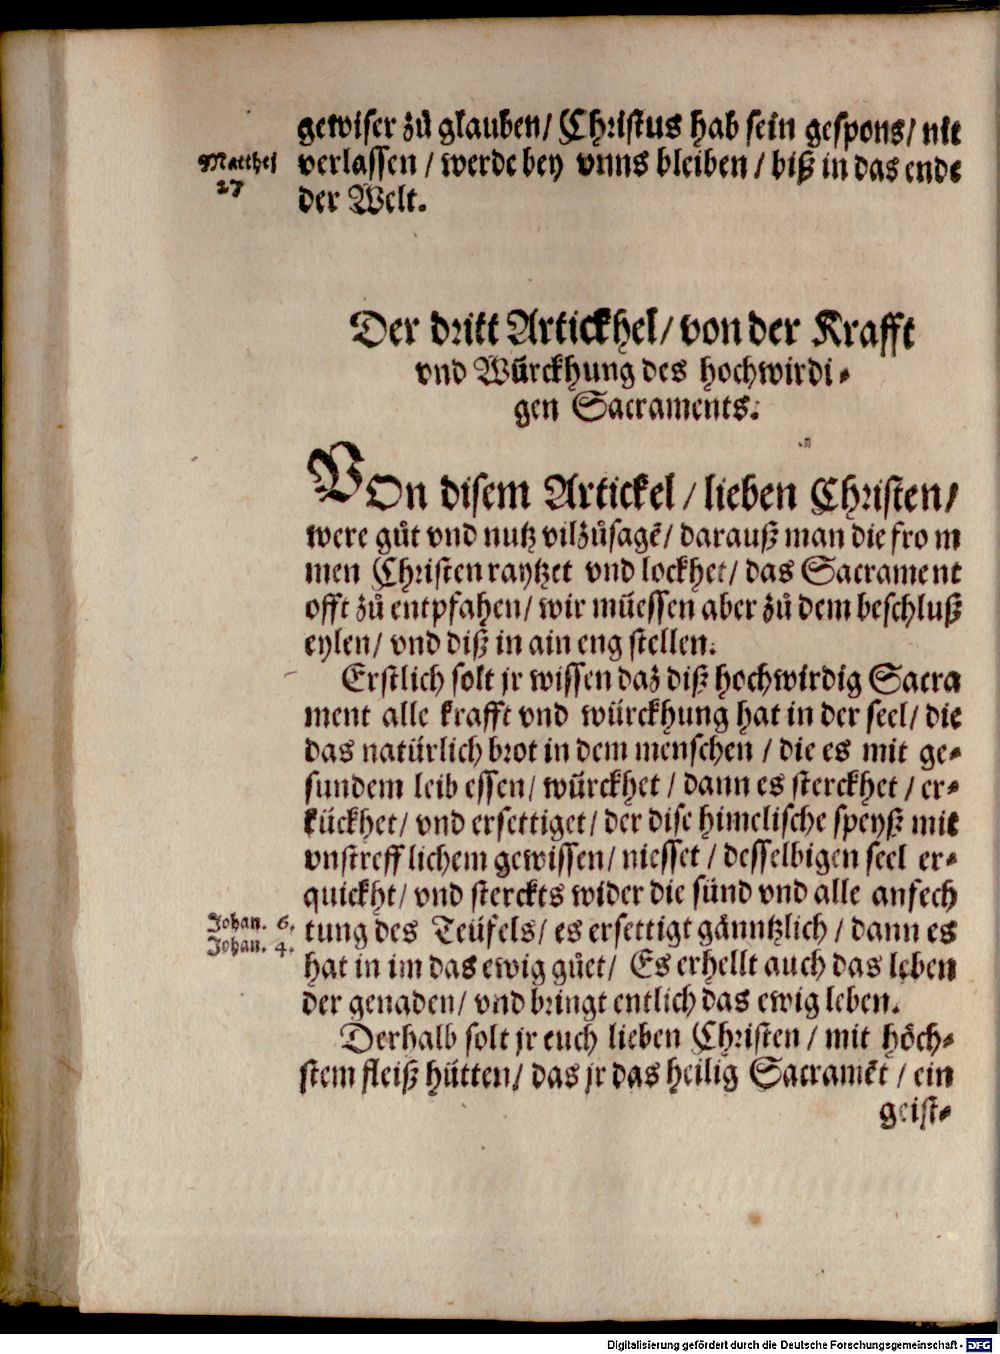 gewiser zů glauben/ Christus hab sein gespons/ nit
Matthei
27
verlassen / werde bey vnns bleiben / biß in das ende
der Welt.
Der dritt Artickhel/ von der Krafft
vnd Würckhung des hochwirdi⸗
gen Sacraments.
VOn disem Artickel / lieben Christen/
were gůt vnd nutz vilzůsagē/ darauß man die from
men Christen raytzet vnd lockhet/ das Sacrament
offt zů entpfahen/ wir müessen aber zů dem beschluß
eylen/ vnd diß in ain eng stellen.
Erstlich solt jr wissen daz diß hochwirdig Sacra
ment alle krafft vnd würckhung hat in der seel/ die
das natürlich brot in dem menschen / die es mit ge⸗
sundem leib essen/ würckhet / dann es sterckhet / er⸗
kückhet/ vnd ersettiget/ der dise himelische speyß mit
vnstrefflichem gewissen/ niesset / desselbigen seel er⸗
quickht/ vnd sterckts wider die sünd vnd alle anfech
Johan. 6.
Johan. 4.
tung des Teüfels/ es ersettigt gänntzlich / dann es
hat in im das ewig gůet/ Es erhellt auch das leben
der genaden/ vnd bringt entlich das ewig leben.
Derhalb solt jr euch lieben Christen / mit höch⸗
stem fleiß hütten/ das jr das heilig Sacramēt / ein
geist⸗
Digitalisierung gefördert durch die Deutsche Forschungsgemeinschaft - DFG